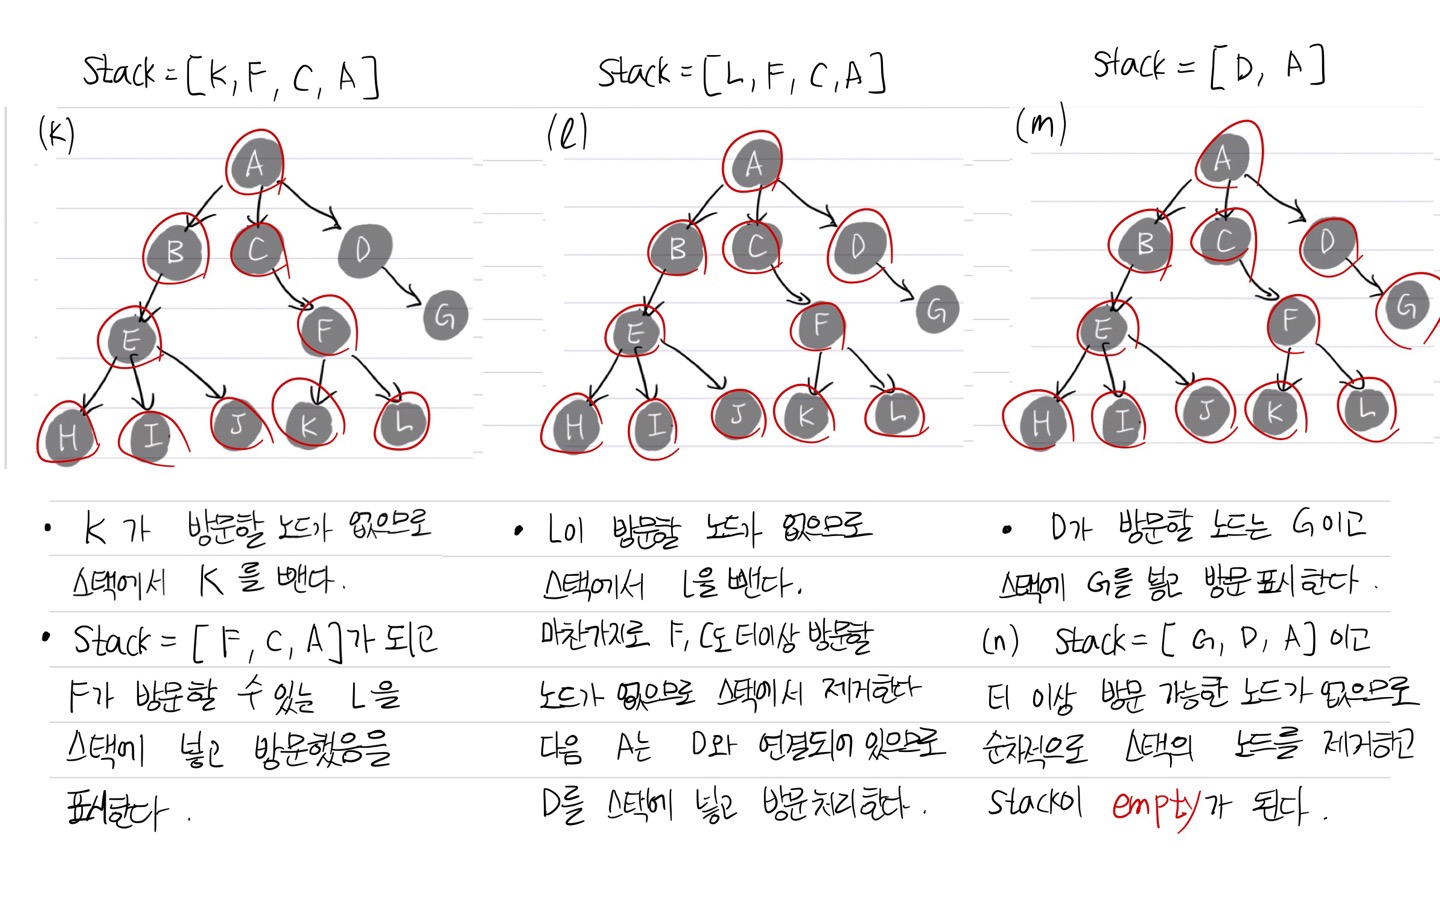 Stack = [K, F, C, A]
(K)
A
B C D
E F G
H I J K L
• K가 방문할 노드가 없으므로
스택에서 K를 뺀다.
• Stack = [F, C, A]가 되고
F가 방문할 수 있는 L을
스택에 넣고 방문했음을
표시한다.
Stack = [L, F, C, A]
(l)
A
B C D
E F G
H I J K L
• L이 방문할 노드가 없으므로
스택에서 L을 뺀다.
마찬가지로 F, C도 더이상 방문할
노드가 없으므로 스택에서 제거한다
다음 A는 D와 연결되어 있으므로
D를 스택에 넣고 방문처리한다.
Stack = [D, A]
(m)
A
B C D
E F G
H I J K L
• D가 방문할 노드는 G이고
스택에 G를 넣고 방문 표시한다.
(n) Stack = [G, D, A]이고
더 이상 방문 가능한 노드가 없으므로
순차적으로 스택의 노드를 제거하고
Stack이 empty가 된다.